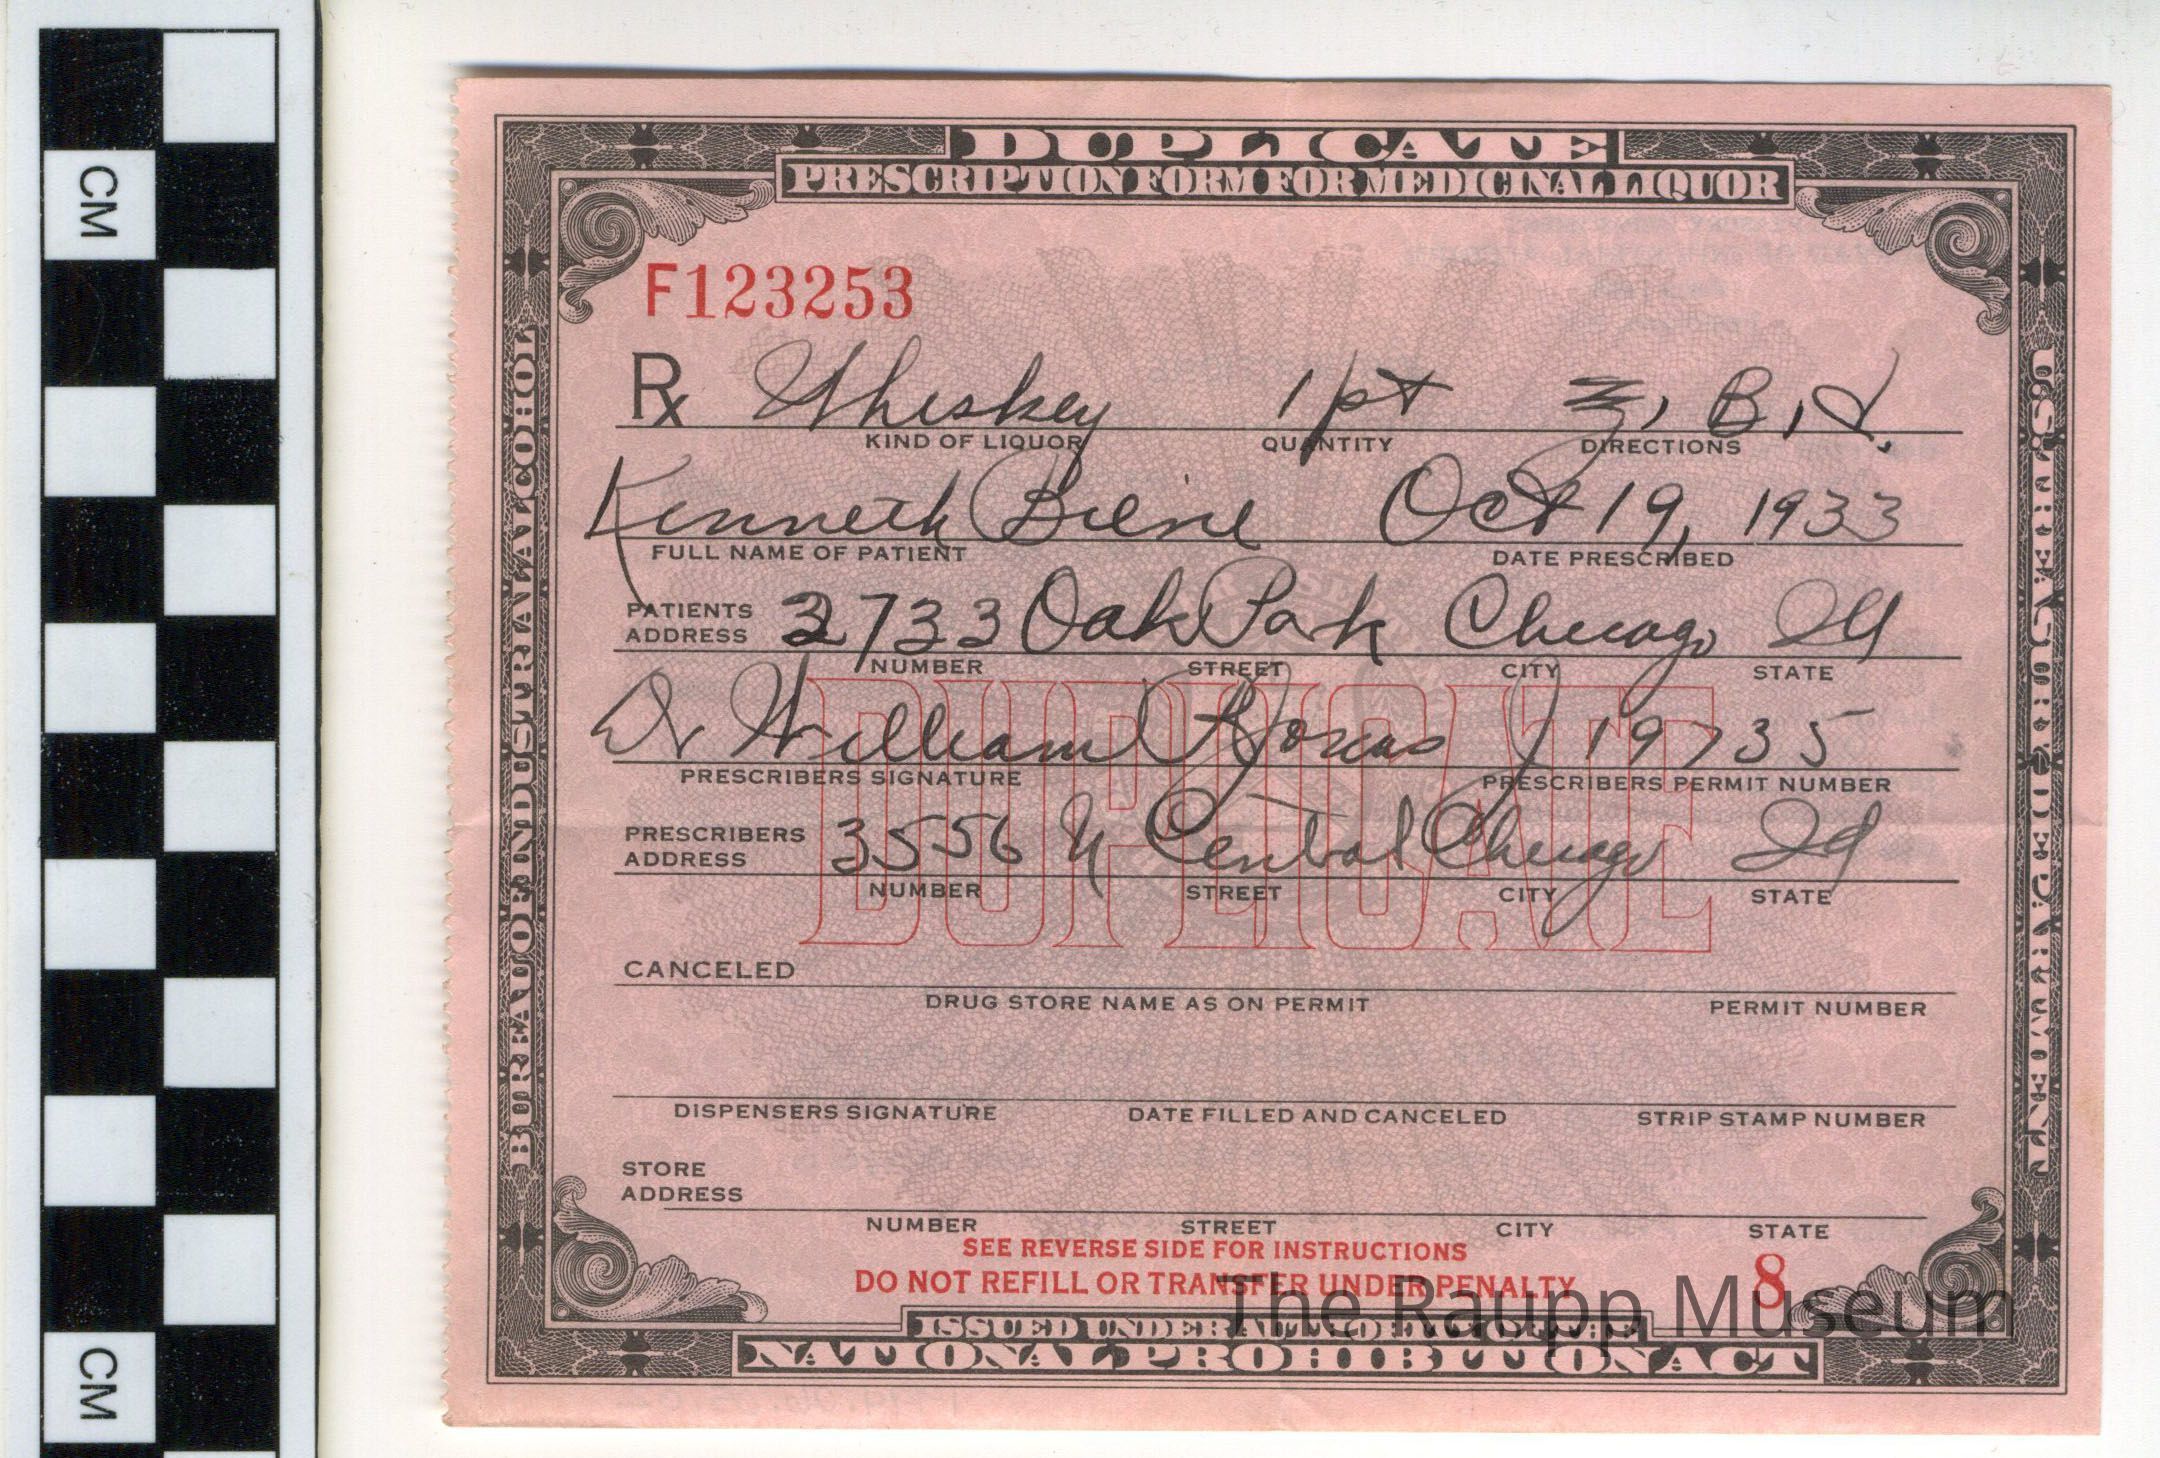 CM
CM
DUPLICATE
PRESCRIPTION FORM FOR MEDICINAL LIQUOR
BUREAU OF INDUSTRIAL ALCOHOL
U.S. TREASURY DEPARTMENT
F123253
Rx Whiskey 1 pt B.
KIND OF LIQUOR QUANTITY DIRECTIONS
Kenneth Oct 19, 1933
FULL NAME OF PATIENT DATE PRESCRIBED
PATIENTS ADDRESS 2733 Oak Park Chicago Ill
NUMBER STREET CITY STATE
Dr William 19735
PRESCRIBERS SIGNATURE PRESCRIBERS PERMIT NUMBER
DUPLICATE
PRESCRIBERS ADDRESS 3556 N Central Chicago Ill
NUMBER STREET CITY STATE
CANCELED
DRUG STORE NAME AS ON PERMIT PERMIT NUMBER
DISPENSERS SIGNATURE DATE FILLED AND CANCELED STRIP STAMP NUMBER
STORE ADDRESS
NUMBER STREET CITY STATE
SEE REVERSE SIDE FOR INSTRUCTIONS
DO NOT REFILL OR TRANSFER UNDER PENALTY 8
The Raupp Museum
ISSUED UNDER AUTHORITY OF THE
NATIONAL PROHIBITION ACT